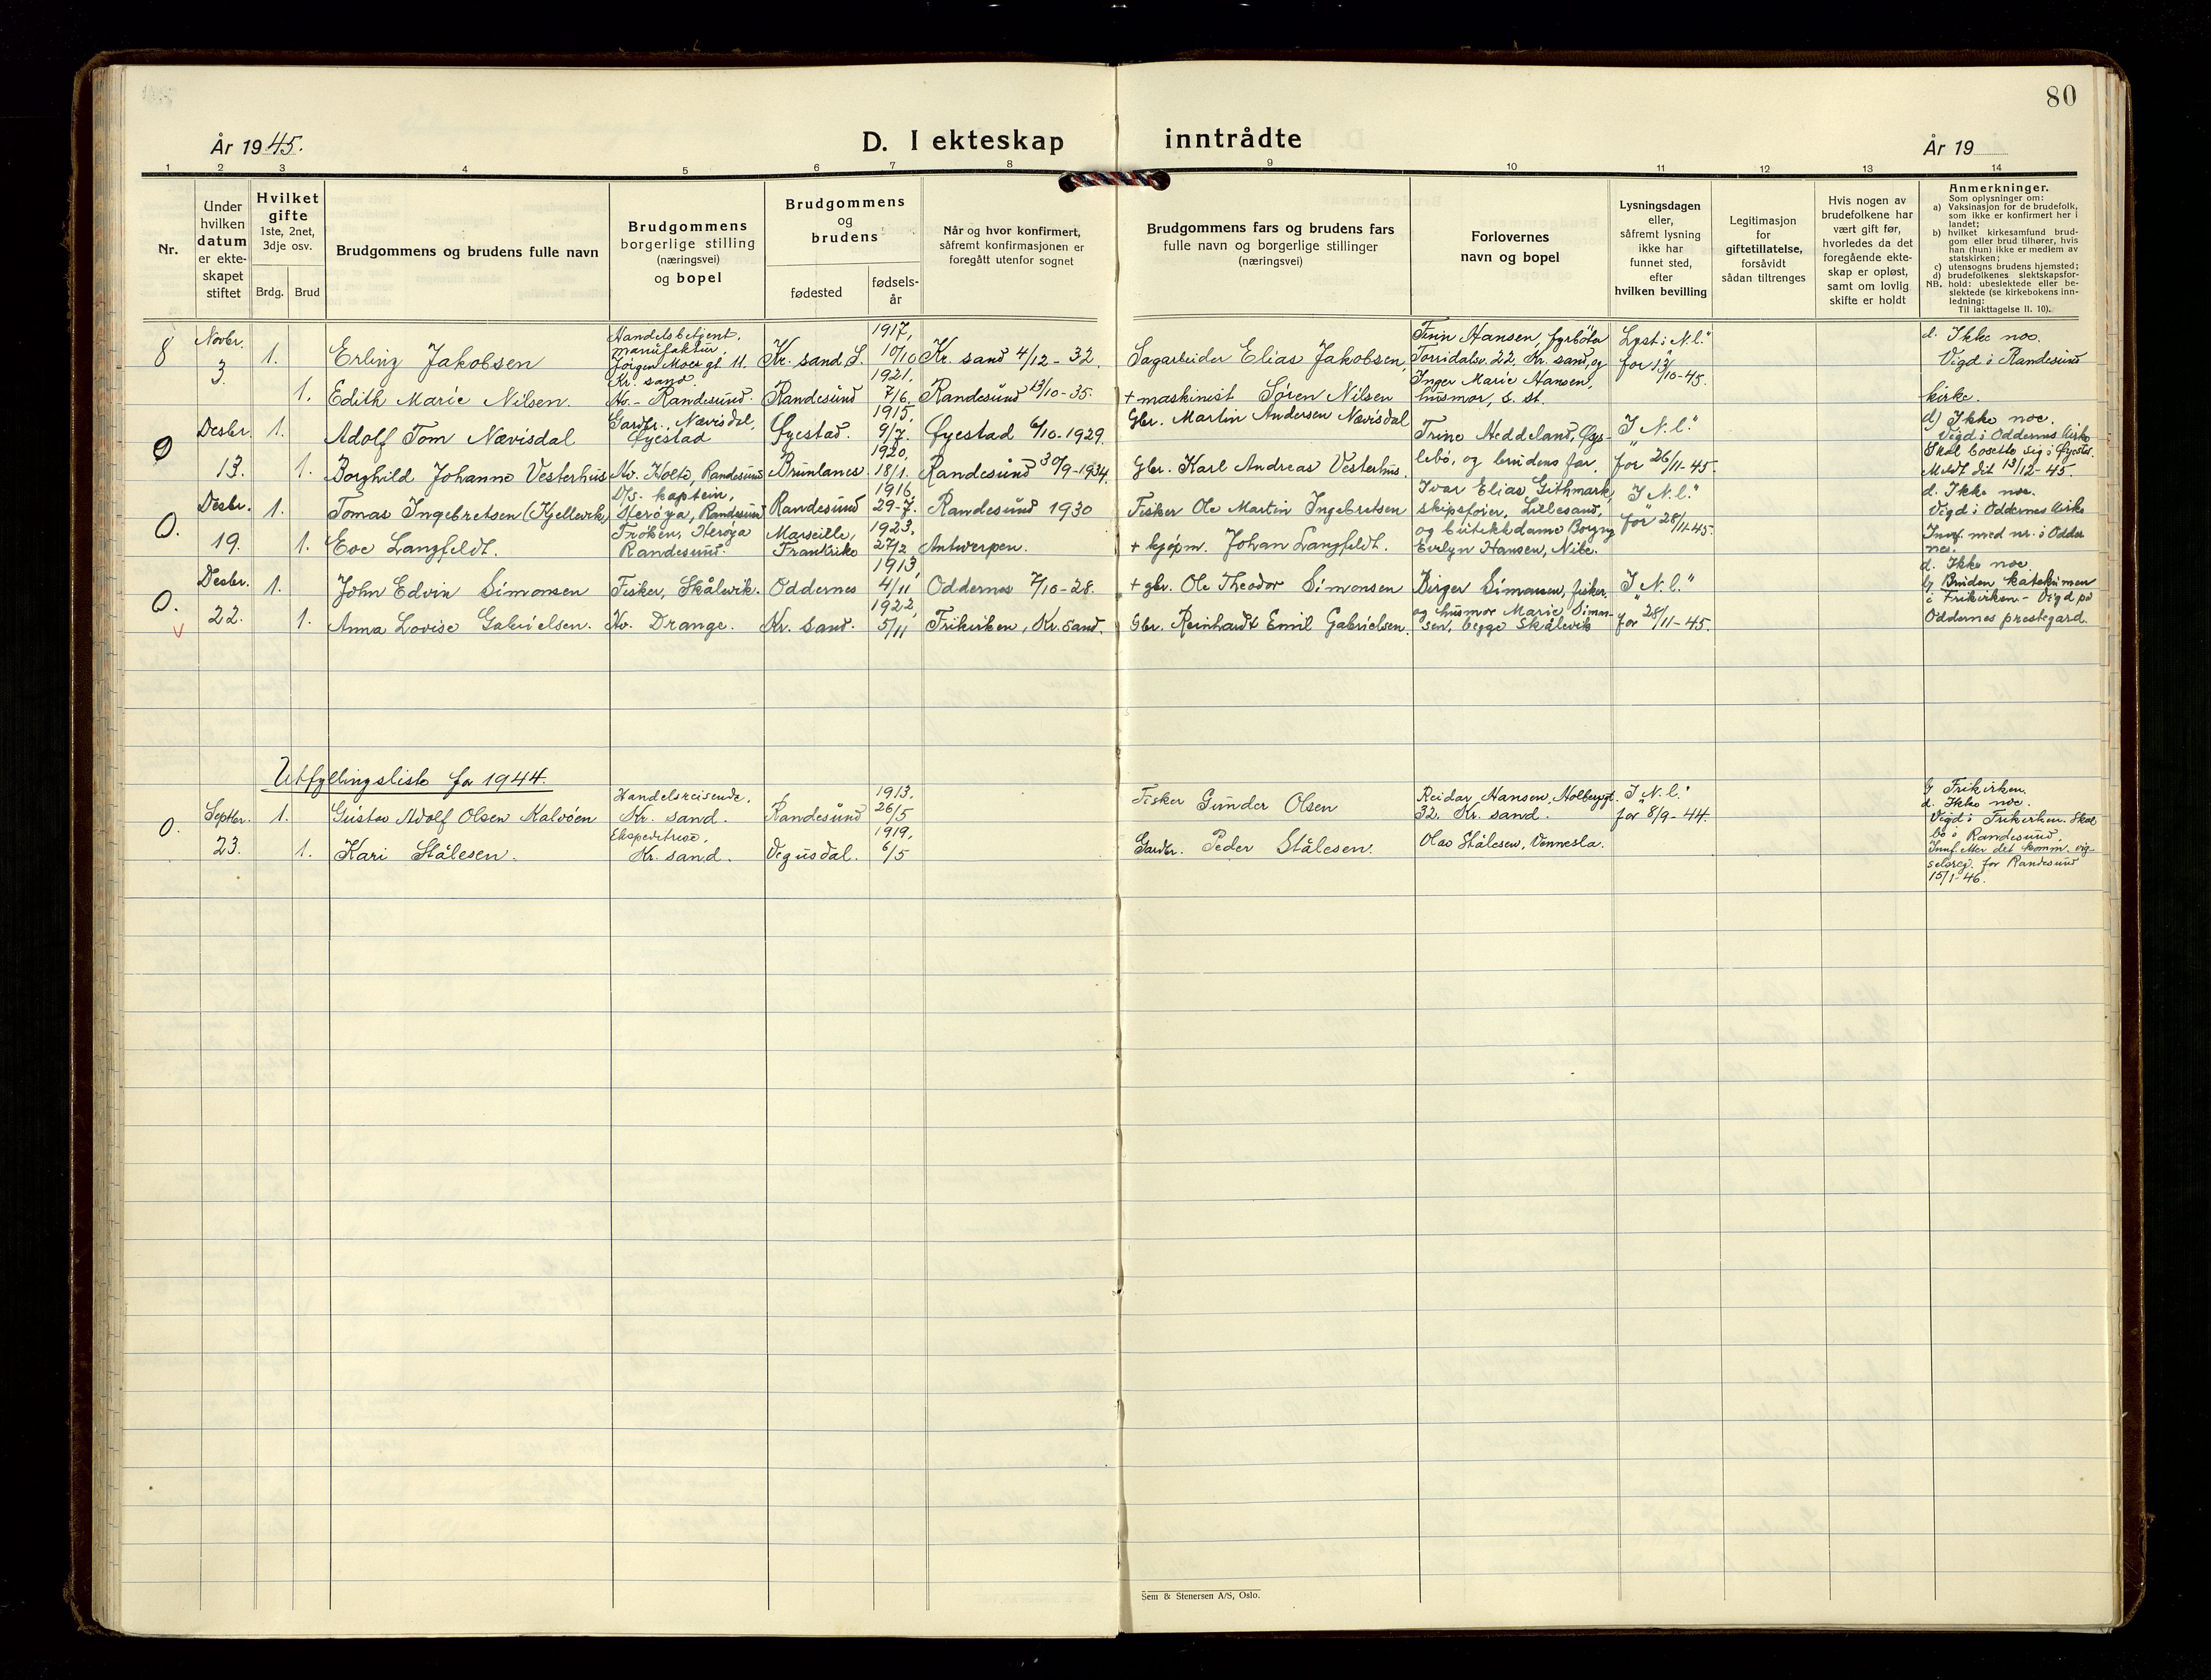 80
År 1945.
D. I ekteskap inntrådte
År 19
1 2 3 4 5 6 7 8 9 10 11 12 13 14
Nr.
Under
hvilken
datum
er ekte-
skapet
stiftet
Hvilket
gifte
1ste, 2net,
3dje osv.
Brdg. Brud
Brudgommens og brudens fulle navn
Brudgommens
borgerlige stilling
(næringsvei)
og bopel
Brudgommens
og
brudens
fødested
fødsels-
år
Når og hvor konfirmert,
såfremt konfirmasjonen er
foregått utenfor sognet
Brudgommens fars og brudens fars
fulle navn og borgerlige stillinger
(næringsvei)
Forlovernes
navn og bopel
Lysningsdagen
eller,
såfremt lysning
ikke har
funnet sted,
efter
hvilken bevilling
Legitimasjon
for
giftetillatelse,
forsåvidt
sådan tiltrenges
Hvis nogen av
brudefolkene har
vært gift før,
hvorledes da det
foregående ekte-
skap er opløst,
samt om lovlig
skifte er holdt
Anmerkninger.
Som oplysninger om:
a) Vaksinasjon for de brudefolk,
som ikke er konfirmert her i
landet;
b) hvilket kirkesamfund brud-
gom eller brud tilhører, hvis
han (hun) ikke er medlem av
statskirken;
c) utensogns brudens hjemsted;
d) brudefolkenes slektskapsfor-
NB. hold: ubeslektede eller be-
slektede (se kirkebokens inn-
ledning:
Til iakttagelse II. 10).
8
Novbr.
3.
1.
Erling Jakobsen
Handelsbetjent,
manufaktur,
Jørgen Moes gt. 11.
Kr. sand.
Kr. sand S.
1917,
10/10
Kr. sand 4/12-32.
Sagarbeider Elias Jakobsen,
Finn Hansen, fyrbøter
Torridalsv. 22, Kr. sand, og
Inger Marie Hansen,
husmor, s. st.
Lyst i "N.l."
for 13/10-45.
d. Ikke noe.
Vigd i Randesund
kirke.
1.
Edith Marie Nilsen.
Hv. - Randesund.
Randesund
1921,
7/6
Randesund 13/10-35.
+ maskinist Søren Nilsen
0
Desbr.
13.
1.
Adolf Tom Nævisdal
Gardbr., Nævisdal,
Øyestad
Øyestad.
1915,
9/7.
Øyestad 6/10-1929.
Gbr. Martin Andersen Nævisdal
Trine Heddeland, Øys-
lebø, og brudens far.
I "N.l."
for 26/11-45.
d) Ikke noe.
Vigd i Oddernes kirke
Skal bosette sig i Øyestad.
Meldt dit 13/12-45.
1.
Borghild Johanne Vesterhus
Hv. Holte, Randesund
Brunlanes
1920,
18/1.
Randesund 30/9-1934.
Gbr. Karl Andreas Vesterhus.
0.
Desbr.
19.
1.
Tomas Ingebretsen (Kjellevik)
D/s. kaptein,
Herøya, Randesund
Randesund
1916,
29-7.
Randesund 1930
Fisker Ole Martin Ingebretsen
Ivar Elias Githmark,
skipsfører, Lillesand,
og butikkdame Borgny
Evelyn Hansen, Nibe.
I "N.l."
for 28/11-45.
d. Ikke noe.
Vigd i Oddernes kirke
Innf. med nr. i Odder
nes.
1.
Eve Langfeldt.
Frøken, Herøya
Randesund.
Marseille,
Frankrike
1923,
27/2
Antwerpen.
+ kjøpm. Johan Langfeldt.
0.
Desbr.
22.
1.
John Edvin Simonsen
Fisker, Skålevik.
Oddernes
1913,
4/11
Oddernes 7/10-28.
+ gbr. Ole Theodor Simonsen
Birger Simonsen, fisker,
og husmor Marie Simon-
sen, begge Skålevik
I "N.l."
for 28/11-45.
d. Ikke noe.
b) Bruden katekumen
i Frikirken. - Vigd på
Oddernes prestegard.
1.
Anna Lovise Gabrielsen.
Hv. Drange.
Kr. sand.
1922,
5/11
Frikirken, Kr. sand.
Gbr. Reinhardt Emil Gabrielsen.
Utfyllingsliste for 1944.
0.
Septbr.
23.
1.
Gustav Adolf Olsen Kalvøen
Handelsreisende,
Kr. sand.
Randesund
1913.
26/5
Fisker Gunder Olsen
Reidar Hansen, Holbergsgt.
32. Kr. sand.
I "N.l."
for 8/9-44.
b) Frikirken.
d. Ikke noe.
Vigd i Frikirken. Skal
bo i Randesund.
Innf. etter det komm. vig-
selsreg. for Randesund
15/1-46.
1.
Kari Stålesen.
Ekspeditrise,
Kr. sand.
Vegusdal.
1919.
6/5
Gardbr. Peder Stålesen.
Olav Stålesen, Vennesla.
Sem & Stenersen A/S, Oslo.